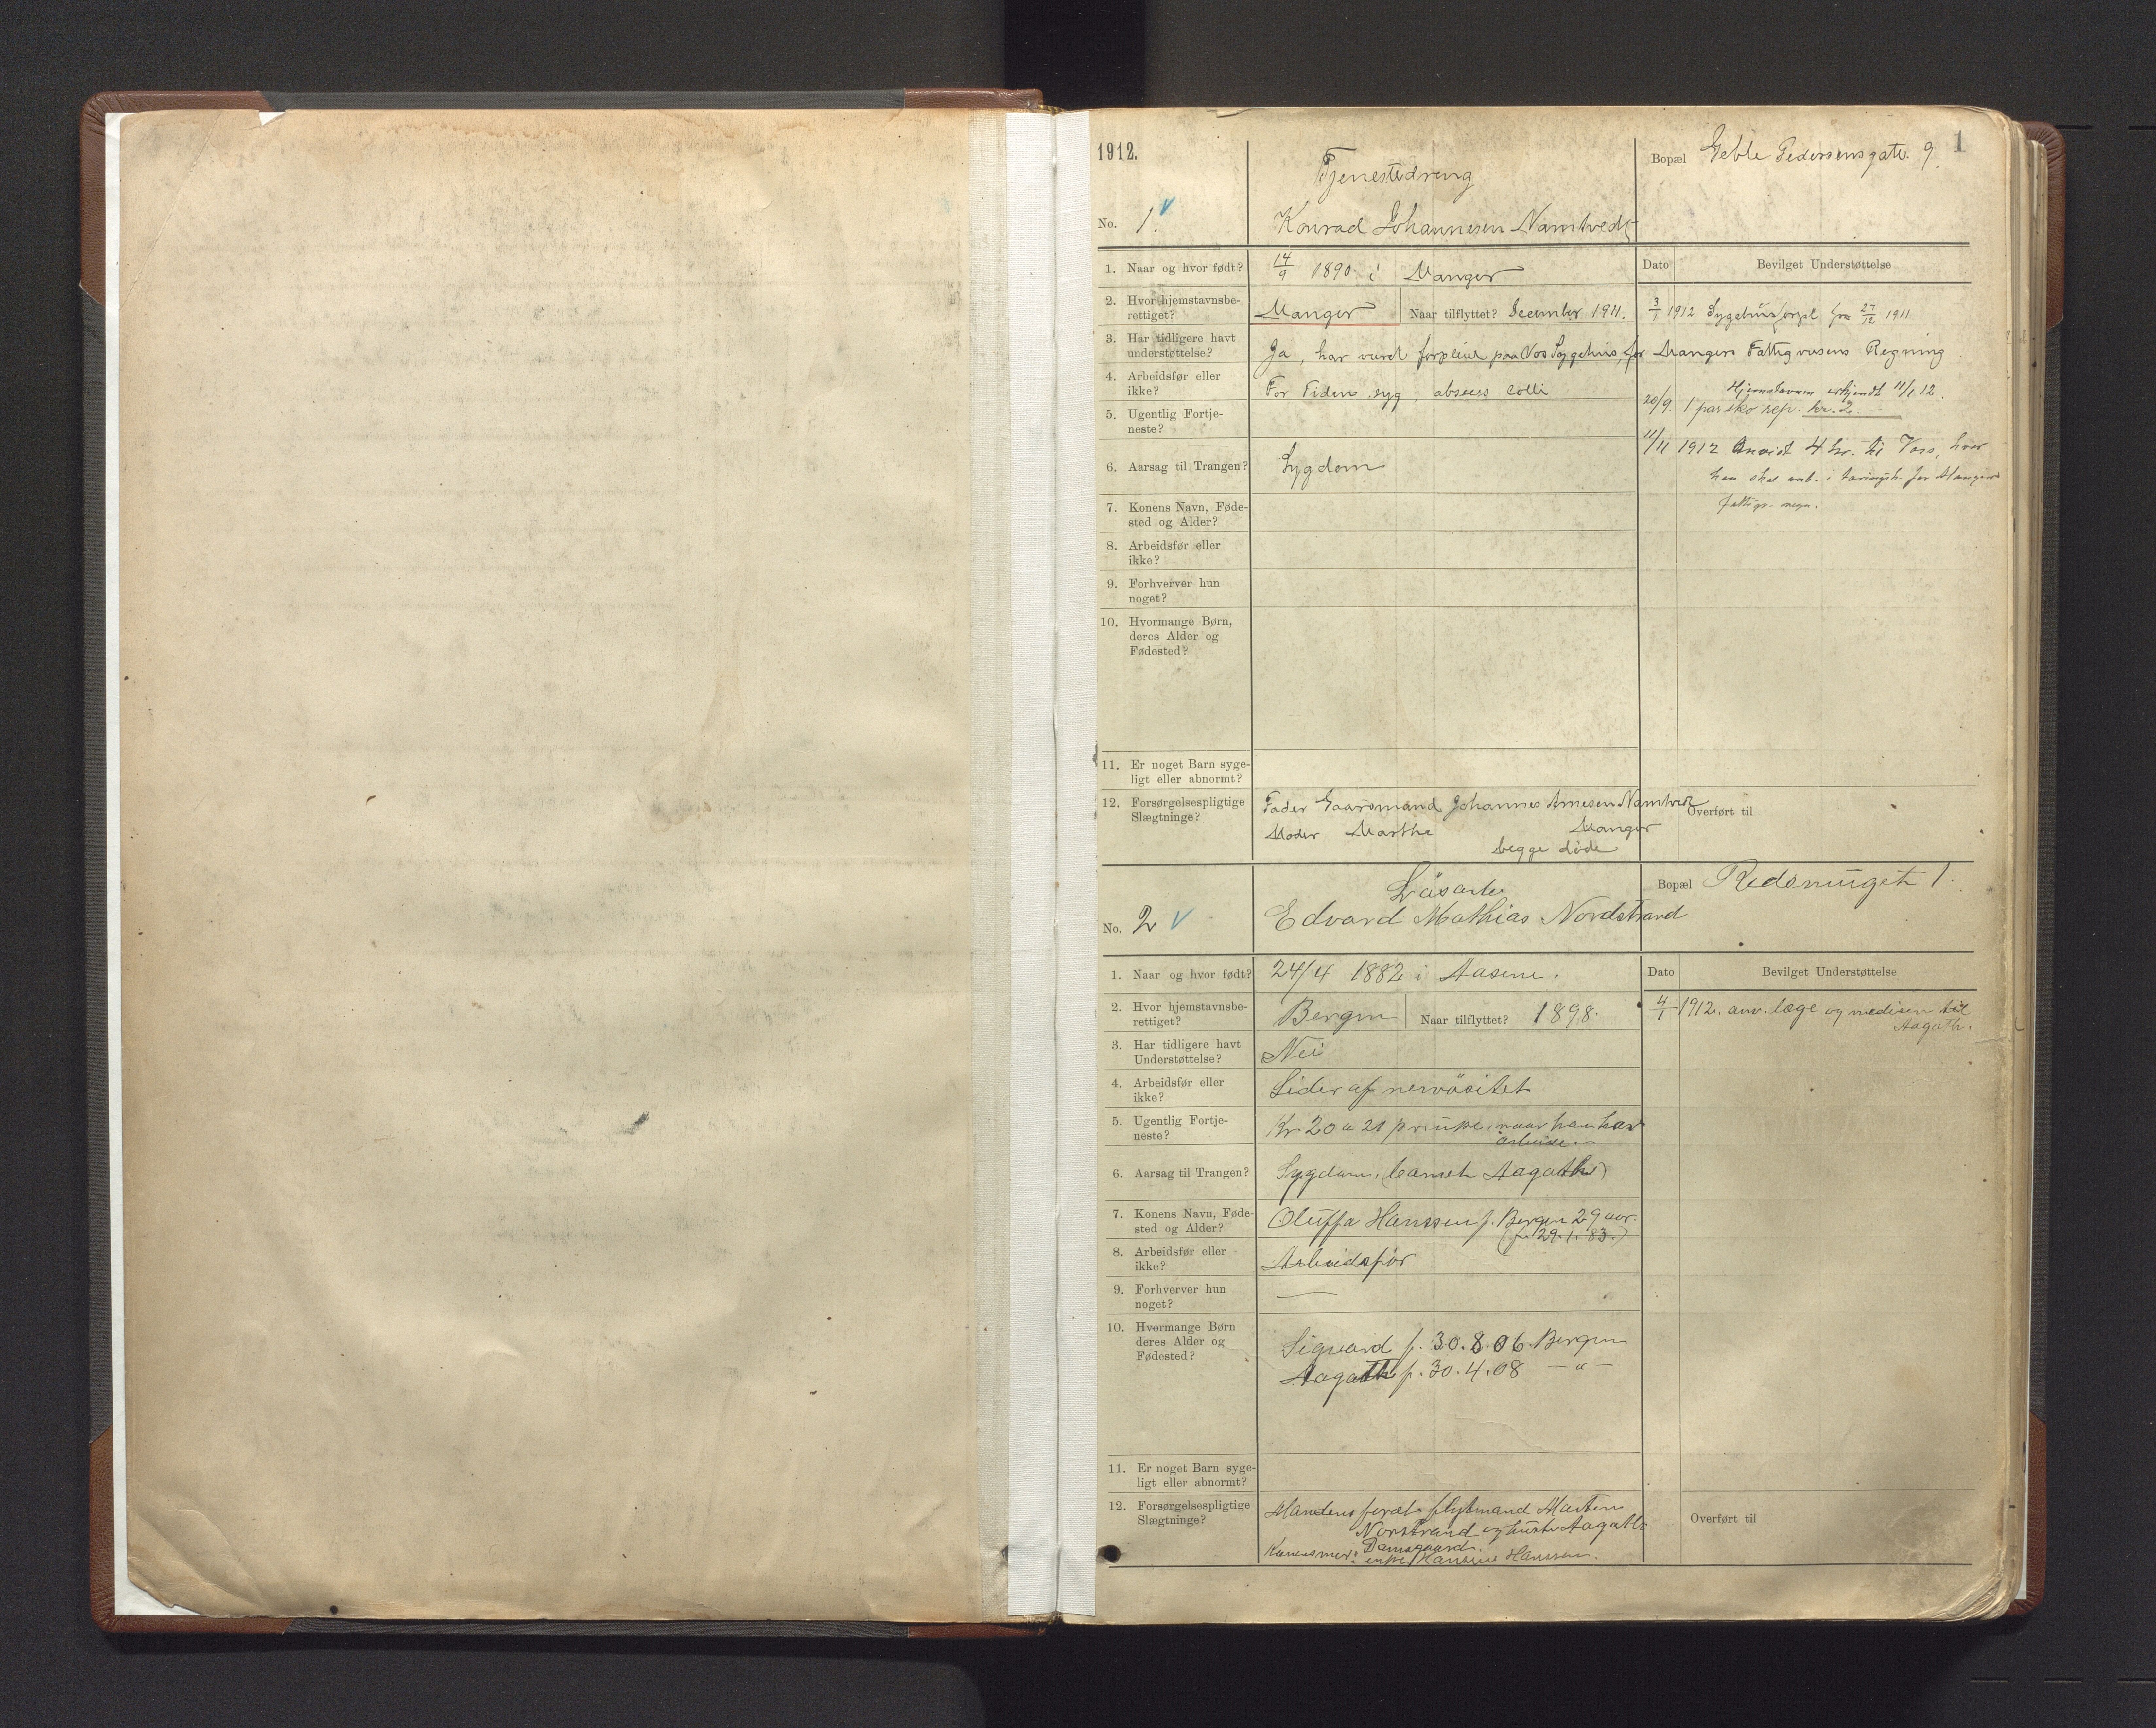 1912.
Tjenestedreng
Bopæl Geble Pedersensgate. 9.
1
No. 1. v
Konrad Johannesen Namtvedt
1. Naar og hvor født?
14/9 1890. i Manger
Dato
Bevilget Understøttelse
2. Hvor hjemstavnsbe-
rettiget?
Manger
Naar tilflyttet? December 1911.
3/1 1912 Sygehusforpl fra 27/12 1911
3. Har tidligere havt
understøttelse?
Ja, har været forpleiet paa Vos Sygehus, for Mangers Fattigvæsens Regning
4. Arbeidsfør eller
ikke?
For Tiden syg, absces colli
Hjemstavnen erkjendt 11/1 12.
20/9 1 par sko rep. kr. 2.—
5. Ugentlig Fortje-
neste?
11/11 1912 Anvist 4 kr. til Voss, hvor
han skal anb. i tæringsh. for Mangers
fattigv. regn.
6. Aarsag til Trangen?
Sygdom
7. Konens Navn, Føde-
sted og Alder?
8. Arbeidsfør eller
ikke?
9. Forhverver hun
noget?
10. Hvormange Børn,
deres Alder og
Fødested?
11. Er noget Barn syge-
ligt eller abnormt?
12. Forsørgelsespligtige
Slægtninge?
Fader Gaardmand Johannes Arnesen Namtvedt
Moder Marthe Manger
begge døde
Overført til
Løsarb.
Bopæl Redsmuget 1.
No. 2 v
Edvard Mathias Nordstrand
1. Naar og hvor født?
24/4 1882 i Aasene.
Dato
Bevilget Understøttelse
2. Hvor hjemstavnsbe-
rettiget?
Bergen
Naar tilflyttet? 1898.
4/1 1912. anv. læge og medisin til
Aagath.
3. Har tidligere havt
Understøttelse?
Nei
4. Arbeidsfør eller
ikke?
Lider af nervøsitet
5. Ugentlig Fortje-
neste?
Kr. 20 a 21 pr uke, naar han har
arbeide.—
6. Aarsag til Trangen?
Sygdom, (barnet Aagathe)
7. Konens Navn, Føde-
sted og Alder?
Oluffa Hanssen f. Bergen 29 aar.
(f. 29.1.83.)
8. Arbeidsfør eller
ikke?
Arbeidsfør
9. Forhverver hun
noget?
—
10. Hvormange Børn
deres Alder og
Fødested?
Sigvard f. 30.8.06. Bergen
Aagathe f. 30.4.08 — " —
11. Er noget Barn syge-
ligt eller abnormt?
12. Forsørgelsespligtige
Slægtninge?
Mandens foræl. flytmand Marten
Norstrand og hustr Aagathe
Damsgaard.
Konens mor: enke Hansine Hanssen.
Overført til